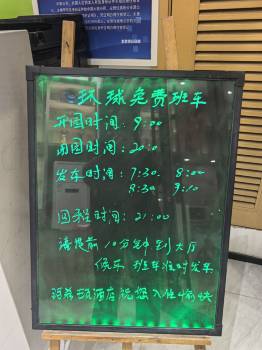 环球免费班车
开园时间: 9:00
闭园时间: 20:0
发车时间: 7:30 8:00
8:30 9:10
回程时间: 21:00
请提前10分钟到大厅
候车 班车准时发车
酒店祝您入住愉快